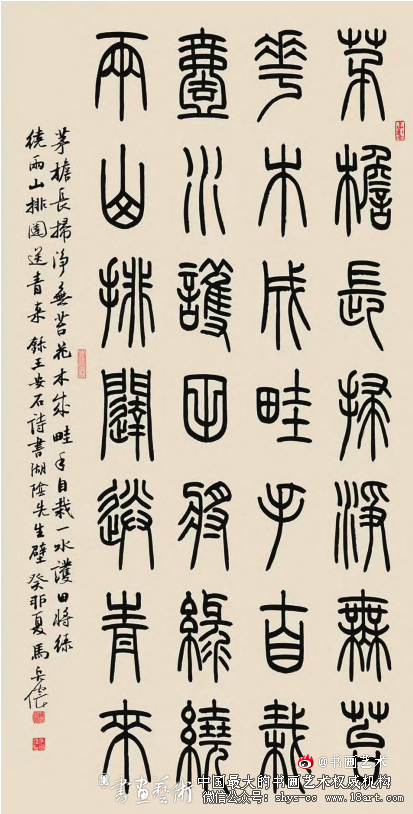 茅檐長掃淨無苔
花木成畦手自栽
壹水護田將綠繞
兩山排闥送青來
茅檐長掃淨無苔花木成畦手自栽一水護田將綠
繞兩山排闥送青來 錄王安石詩書湖陰先生壁 癸卯夏馬
@书画艺术
書畫藝術
中国最大的书画艺术权威机构
微信公众号：shys-cc www.18art.com